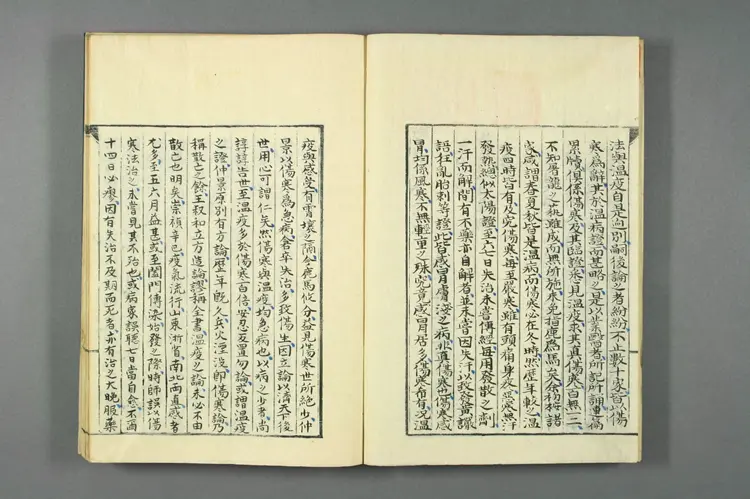 法與溫疫自是迥別嗣後論之者紛紛不止數十家皆以傷
寒為辭其於溫病證而甚略之是以業醫者所記所誦連篇
累牘俱係傷寒及其臨證悉見溫疫求其真傷寒百無一二
不知屠龍之藝雖成而無所施未免指鹿為馬矣余初按諸
家咸謂春夏秋皆是溫病而傷寒必在冬時然歷年較之溫
疫四時皆有及究傷寒每至嚴寒雖有頭痛身疼惡寒無汗
發熱總似太陽證至六七日失治未嘗傳經每用發散之劑
一汗而解間有不藥亦自解者並未嘗因失汗以致發黃譫
語狂亂胎刺等證此皆感冒膚淺之病非真傷寒也傷寒感
冒均係風寒不無輕重之殊究竟感冒居多傷寒希有況溫
疫與感受有霄壤之隔今鹿馬攸分益見傷寒世所絕少仲
景以傷寒為急病倉卒失治多致傷生因立論以濟天下後
世用心可謂仁矣然傷寒與溫疫均急病也以病之少者尚
諄諄告世至溫疫多於傷寒百倍安忍反置勿論或謂溫疫
之證仲景原別有方論歷年既久兵火湮沒即傷寒論乃
稱散亡之餘王叔和立方造論謬稱全書溫疫之論未必不由
散亡也明矣崇禎辛巳疫氣流行山東浙省南北兩直感者
尤多至五六月益甚或至闔門傳染始發之際時師誤以傷
寒法治之未嘗見其不殆也或病家誤聽七日當自愈不爾
十四日必瘳因有失治不及期而死者亦有治之大晚服藥